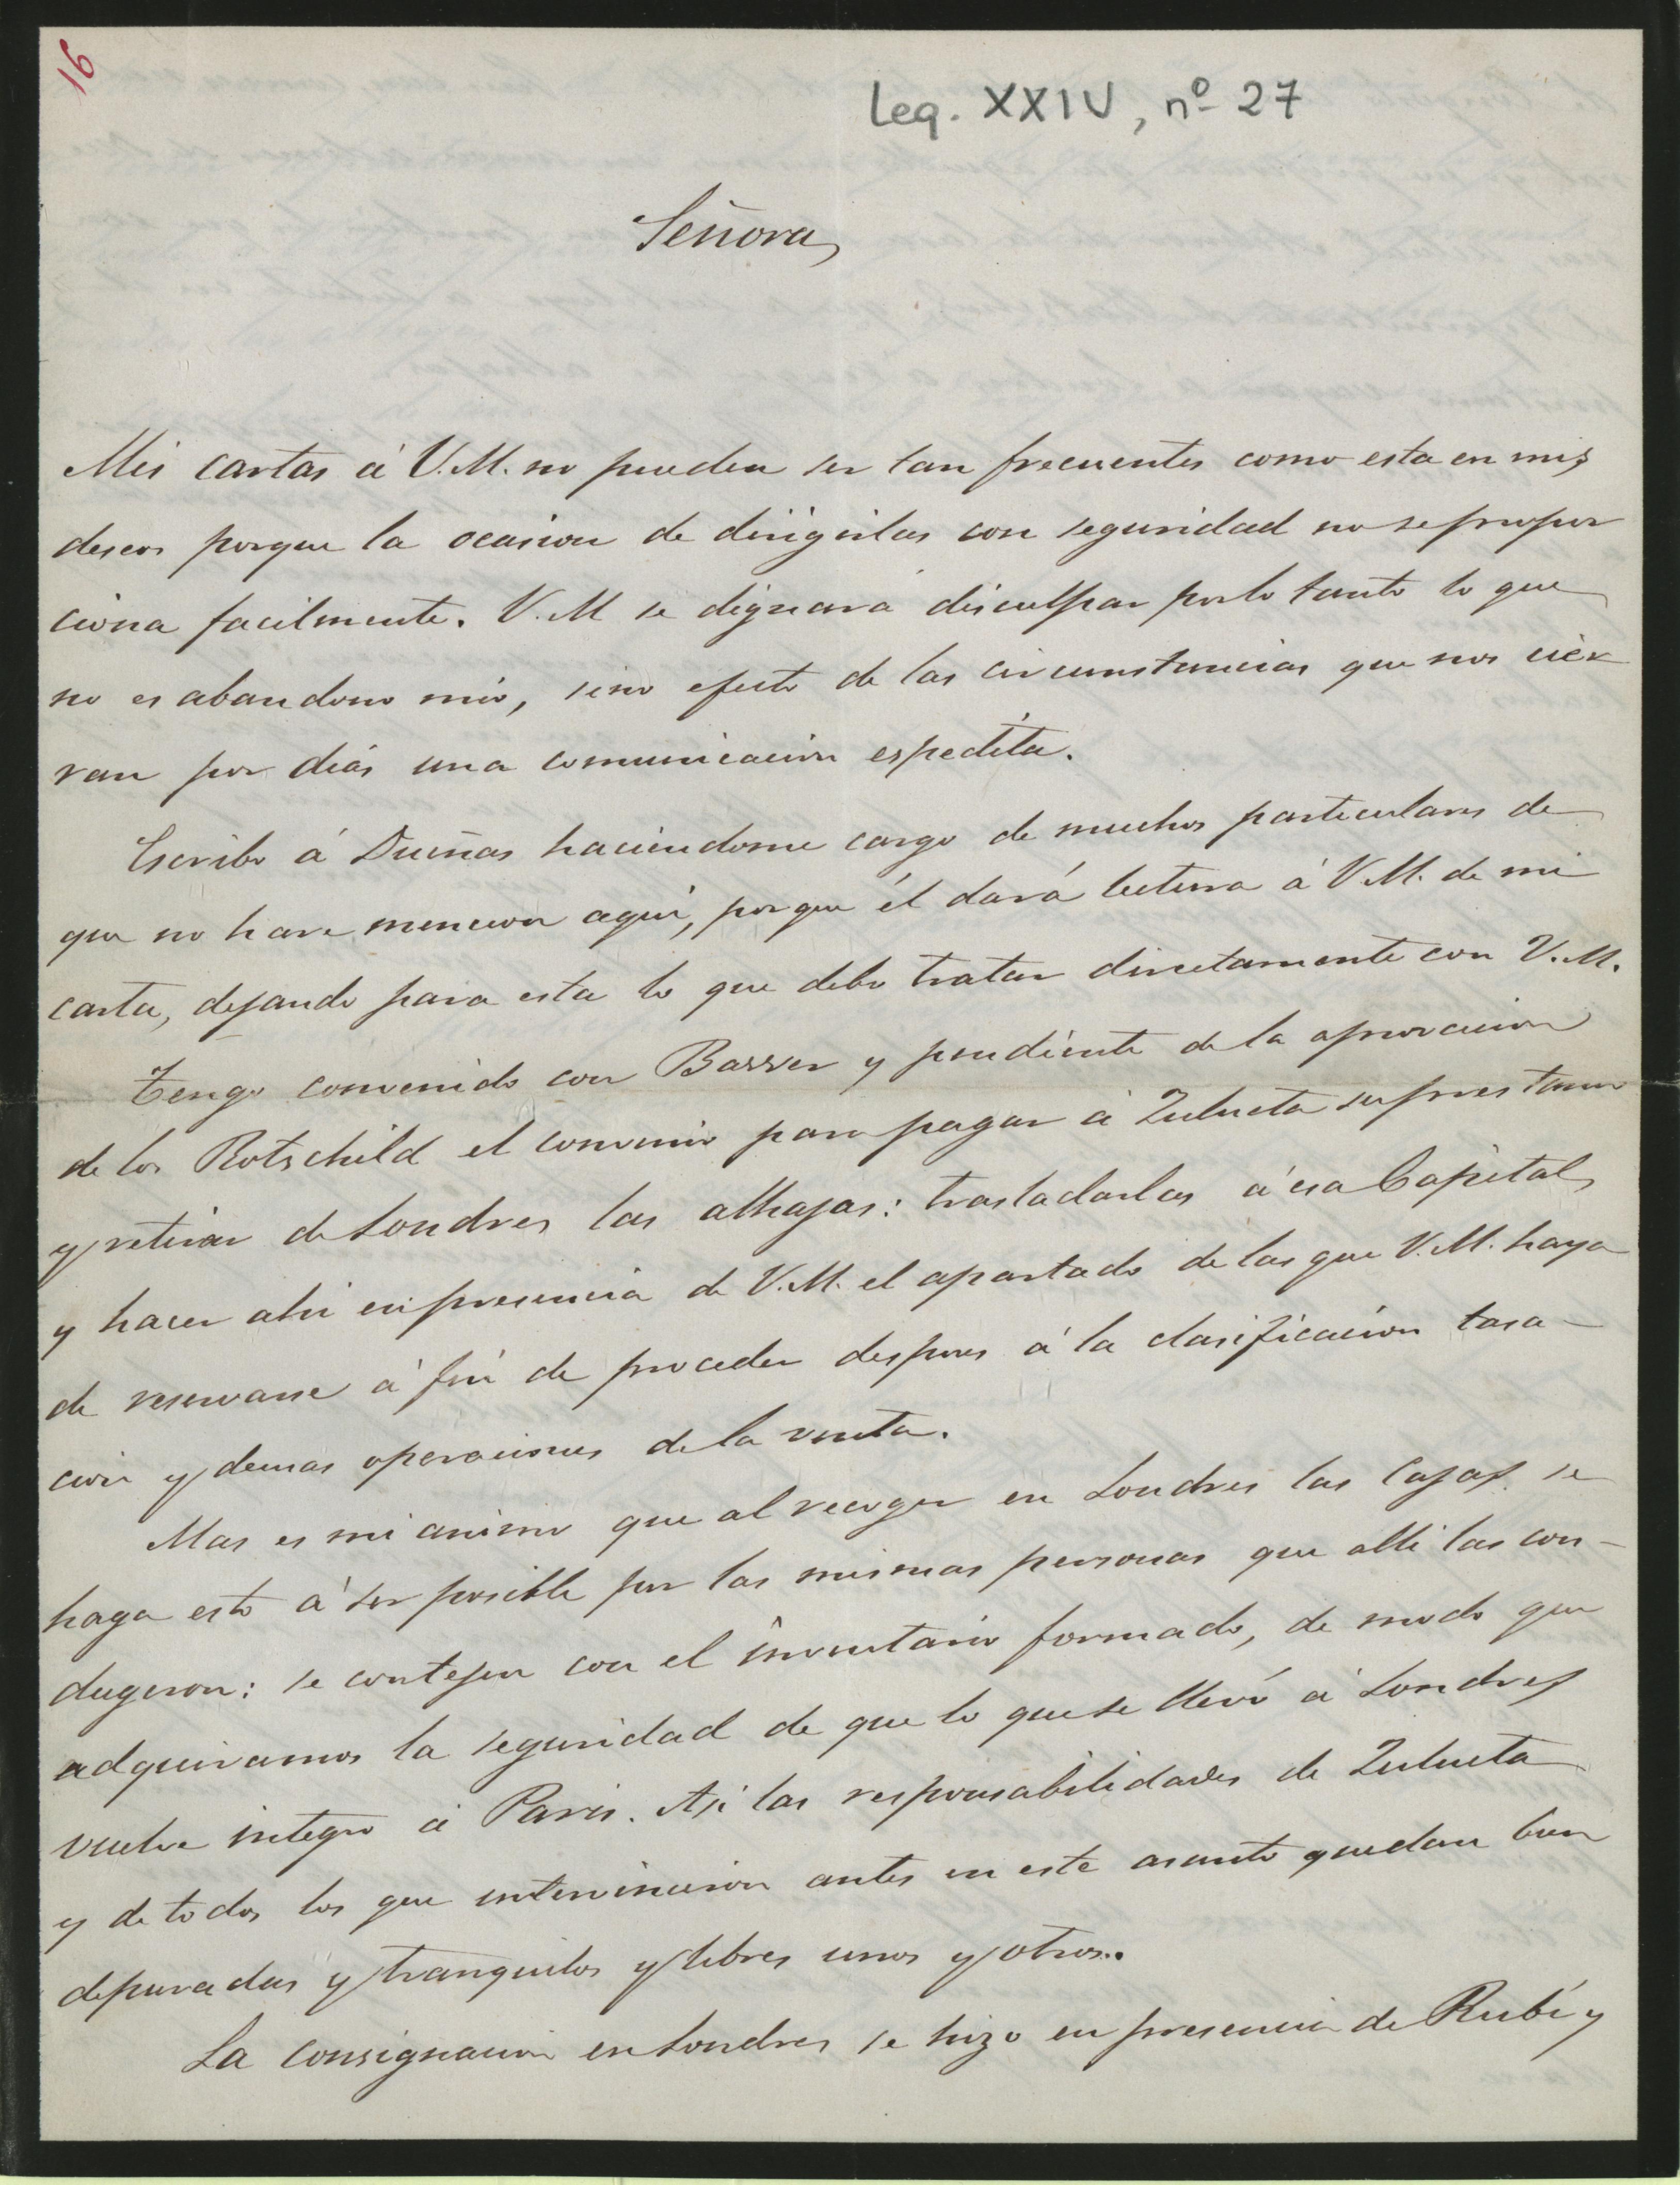 16
Leg. XXIV, nº 27
Señora,
Mis cartas á V.M. no pueden ser tan frecuentes como esta en mis
deseos porque la ocasion de dirigirlas con seguridad no se propor
ciona facilmente. V.M se dignará disculpar por lo tanto lo que
no es abandono mio, sino efecto de las circunstancias que nos cier
ran por dias una comunicacion espedita.
Escribo á Dueñas haciendome cargo de muchos particulares de
que no hare mencion aqui, porque él dará lectura á V.M. de mi
carta, dejando para esta lo que debo tratar directamente con V.M.
Tengo convenido con Baser y pendiente de la aprovacion
de los Rotschild el convenio para pagar á Zulueta su prestamo
y retirar de Londres las alhajas: trasladarlas á esa Capital,
y hacer ahi en presencia de V.M. el apartado de las que V.M. haya
de reservarse á fin de proceder despues á la clasificacion tasa-
cion y demas operaciones de la venta.
Mas es mi animo que al recoger en Londres las Cajas se
haga esto á ser posible por las mismas personas que alli las con-
dugeron: se contejen con el inventario formado, de modo que
adquiramos la seguridad de que lo que se llevó á Londres
vuelve integro á Paris. Asi las responsabilidades de Zulueta
y de todos los que intervinieron antes en este asunto quedan bien
depuradas y tranquilos y libres unos y otros..
La consignacion en Londres se hizo en presencia de Rubí y